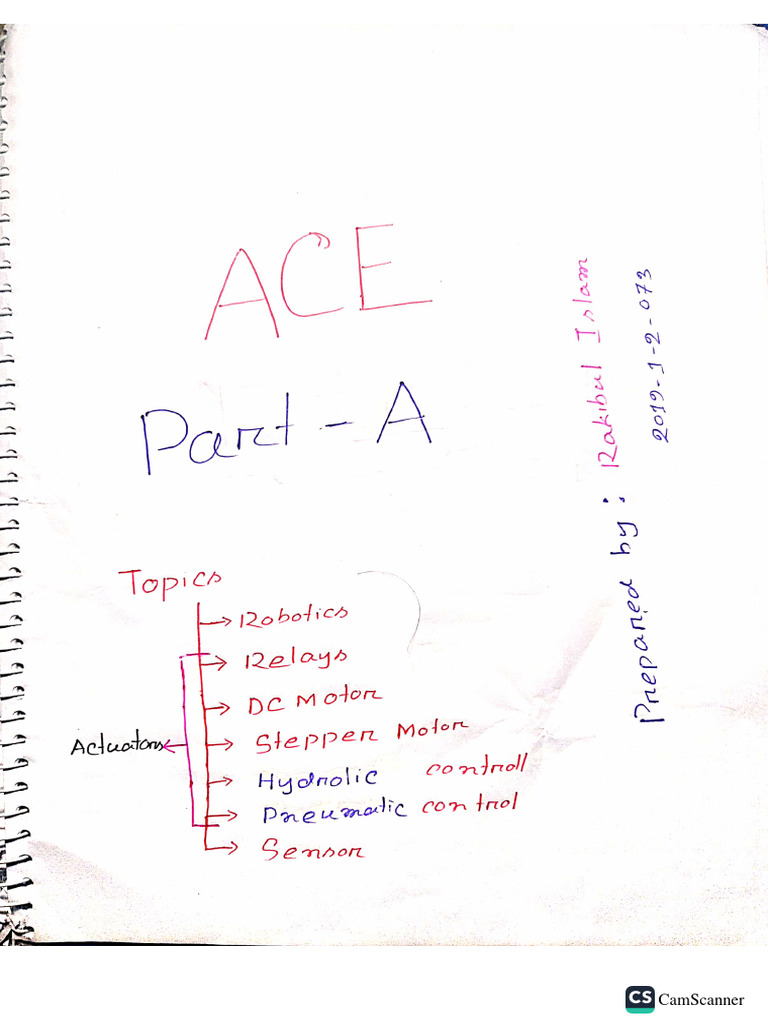 ACE
Part - A
Prepared by : Rakibul Islam
2019-1-2-073
Topics
Robotics
Relays
DC Motor
Stepper Motor
Hydrolic controll
Pneumatic control
Sensor
Actuators
CS CamScanner